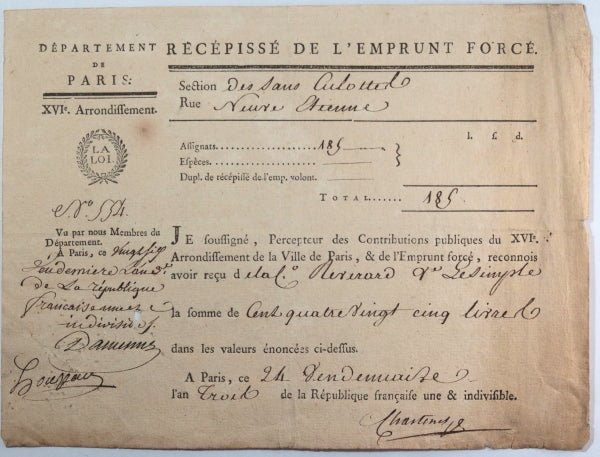 DÉPARTEMENT
DE
PARIS.
XVIe. Arrondissement.
LA
LOI.
N.o 554.
Vu par nous Membres du
Département.
A Paris, ce vingt six
Vendemiere L'an 3e.
de La république
française une et
indivisible.
RÉCÉPISSÉ DE L'EMPRUNT FORCÉ.
Section Des Sans Culottes
Rue Neuve Etienne
l. s. d.
Assignats................... 185
Espèces.....................
Dupl. de récépissé de l'emp. volont.
TOTAL...... 185
JE soussigné, Percepteur des Contributions publiques du XVIe.
Arrondissement de la Ville de Paris, & de l'Emprunt forcé, reconnois
avoir reçu de la Ce. Reverard Ve. Lesimple
la somme de Cent quatre vingt cinq livres
dans les valeurs énoncées ci-dessus.
A Paris, ce 24 Vendemiaire
l'an Trois de la République française une & indivisible.